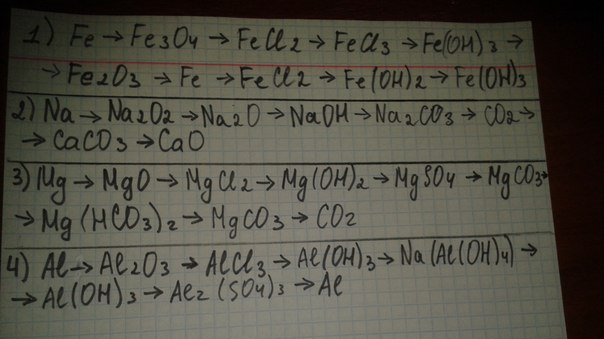 1) Fe → Fe3O4 → FeCl2 → FeCl3 → Fe(OH)3 →
→ Fe2O3 → Fe → FeCl2 → Fe(OH)2 → Fe(OH)3
2) Na → Na2O2 → Na2O → NaOH → Na2CO3 → CO2 →
→ CaCO3 → CaO
3) Mg → MgO → MgCl2 → Mg(OH)2 → MgSO4 → MgCO3 →
→ Mg(HCO3)2 → MgCO3 → CO2
4) Al → Al2O3 → AlCl3 → Al(OH)3 → Na(Al(OH)4) →
→ Al(OH)3 → Al2(SO4)3 → Al